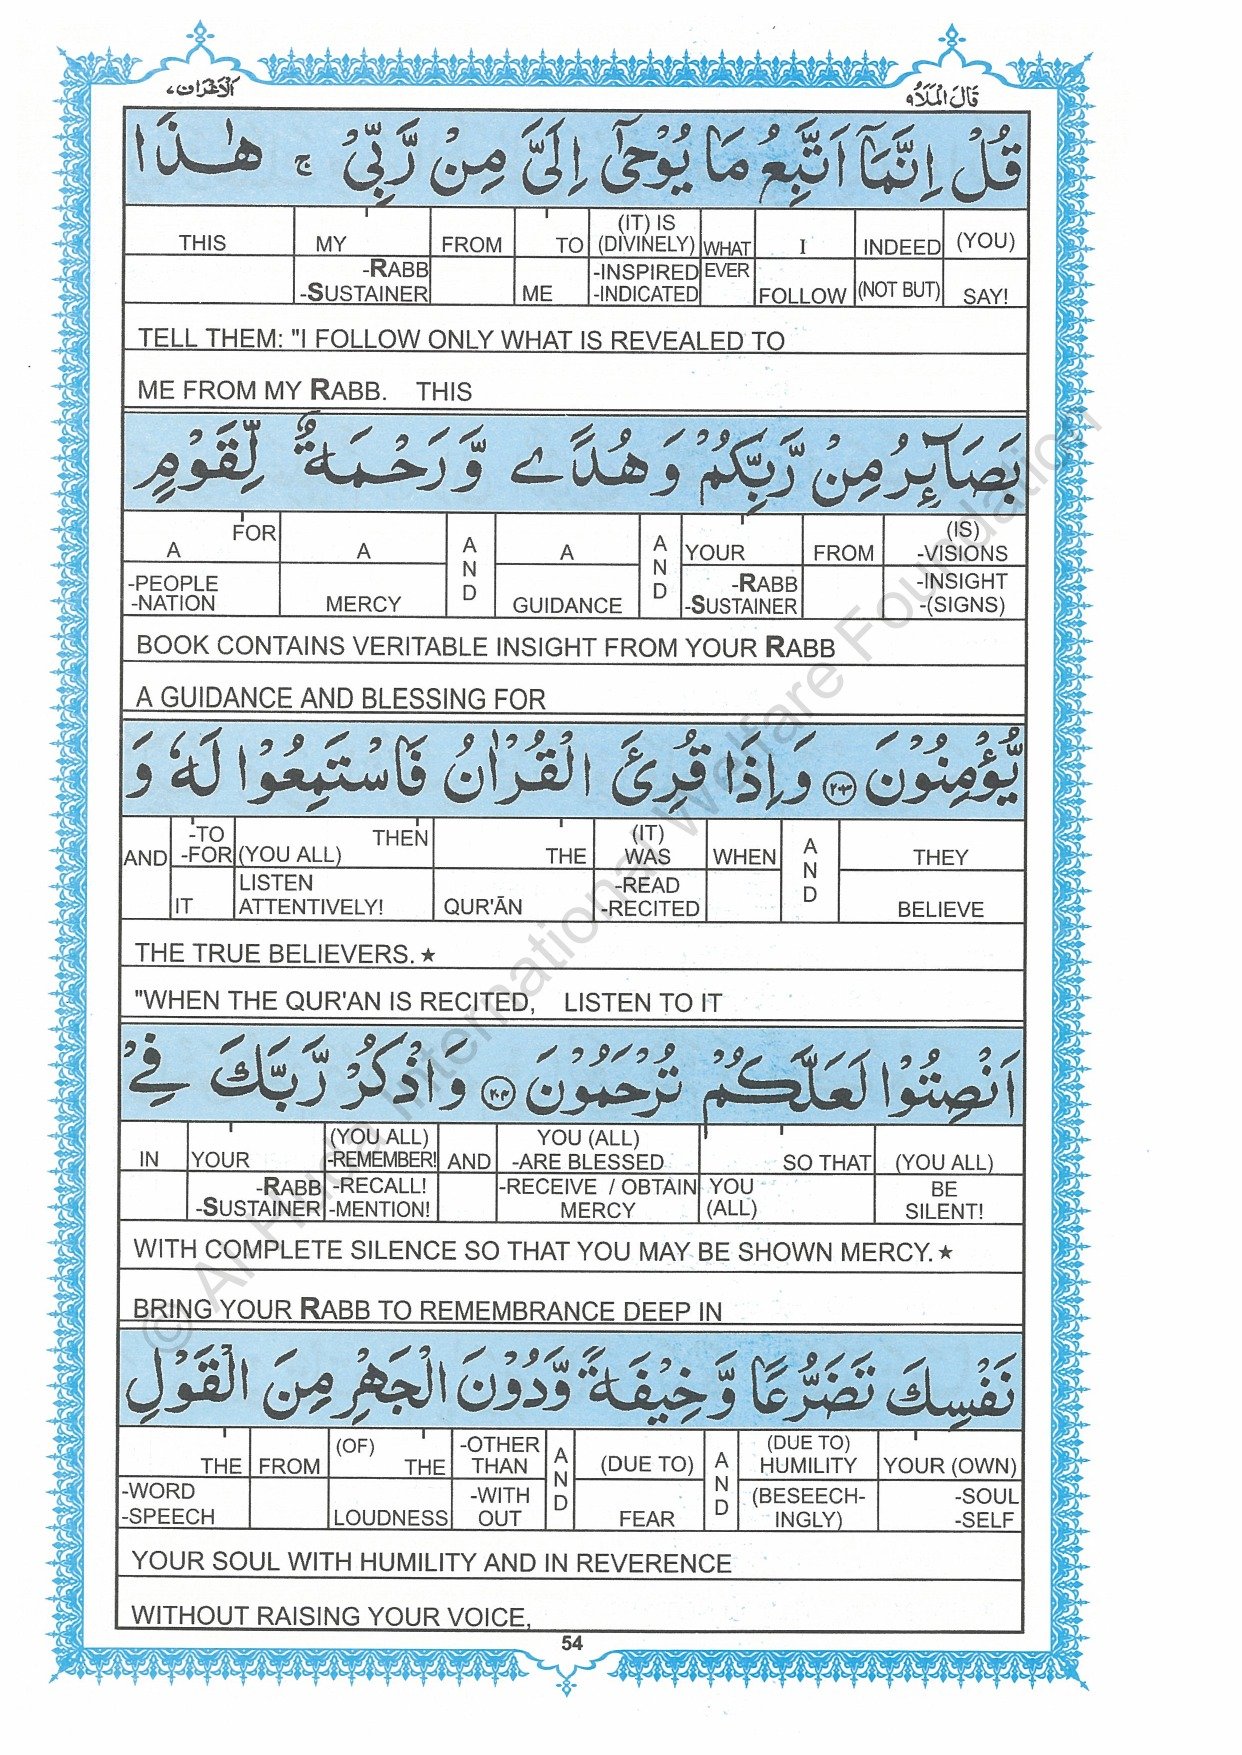 قَالَ الْمَلَاُ ۹
اَلْاَعْرَاف ۷
قُلْ اِنَّمَاۤ اَتَّبِعُ مَا يُوْحٰۤى اِلَىَّ مِنْ رَّبِّىْ ۚ هٰذَا
(YOU) SAY! INDEED (NOT BUT) I FOLLOW WHAT EVER (IT) IS (DIVINELY) -INSPIRED -INDICATED TO ME FROM MY -RABB -SUSTAINER THIS
TELL THEM: "I FOLLOW ONLY WHAT IS REVEALED TO
ME FROM MY RABB. THIS
بَصَآئِرُ مِنْ رَّبِّكُمْ وَهُدًى وَّرَحْمَةٌ لِّقَوْمٍ
(IS) -VISIONS -INSIGHT -(SIGNS) FROM YOUR -RABB -SUSTAINER AND A GUIDANCE AND A MERCY FOR A -PEOPLE -NATION
BOOK CONTAINS VERITABLE INSIGHT FROM YOUR RABB
A GUIDANCE AND BLESSING FOR
يُّؤْمِنُوْنَ ۲۰۳ وَاِذَا قُرِئَ الْقُرْاٰنُ فَاسْتَمِعُوْا لَهٗ وَ
THEY BELIEVE AND WHEN (IT) WAS -READ -RECITED THE QUR'ĀN THEN (YOU ALL) LISTEN ATTENTIVELY! -TO -FOR IT AND
THE TRUE BELIEVERS. ★
"WHEN THE QUR'AN IS RECITED, LISTEN TO IT
اَنْصِتُوْا لَعَلَّكُمْ تُرْحَمُوْنَ ۲۰۴ وَاذْكُرْ رَّبَّكَ فِىْ
(YOU ALL) BE SILENT! SO THAT YOU (ALL) YOU (ALL) -ARE BLESSED -RECEIVE / OBTAIN MERCY AND (YOU ALL) -REMEMBER! -RECALL! -MENTION! YOUR -RABB -SUSTAINER IN
WITH COMPLETE SILENCE SO THAT YOU MAY BE SHOWN MERCY. ★
BRING YOUR RABB TO REMEMBRANCE DEEP IN
نَفْسِكَ تَضَرُّعًا وَّخِيْفَةً وَّدُوْنَ الْجَهْرِ مِنَ الْقَوْلِ
YOUR (OWN) -SOUL -SELF (DUE TO) HUMILITY (BESEECH-INGLY) AND (DUE TO) FEAR AND -OTHER THAN -WITH OUT (OF) THE LOUDNESS FROM THE -WORD -SPEECH
YOUR SOUL WITH HUMILITY AND IN REVERENCE
WITHOUT RAISING YOUR VOICE,
54
© Al Huda International Welfare Foundation